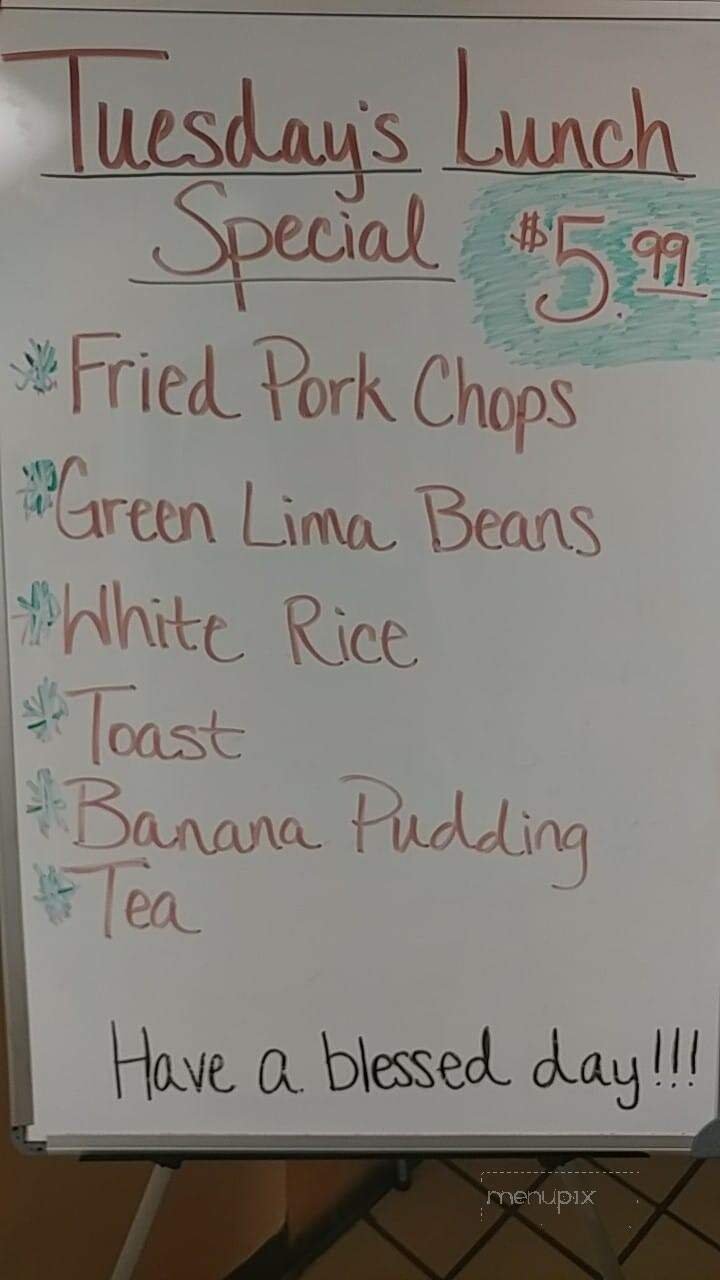 Tuesday's Lunch
Special $5.99
*Fried Pork Chops
*Green Lima Beans
*White Rice
*Toast
*Banana Pudding
*Tea
Have a blessed day!!!
menupix